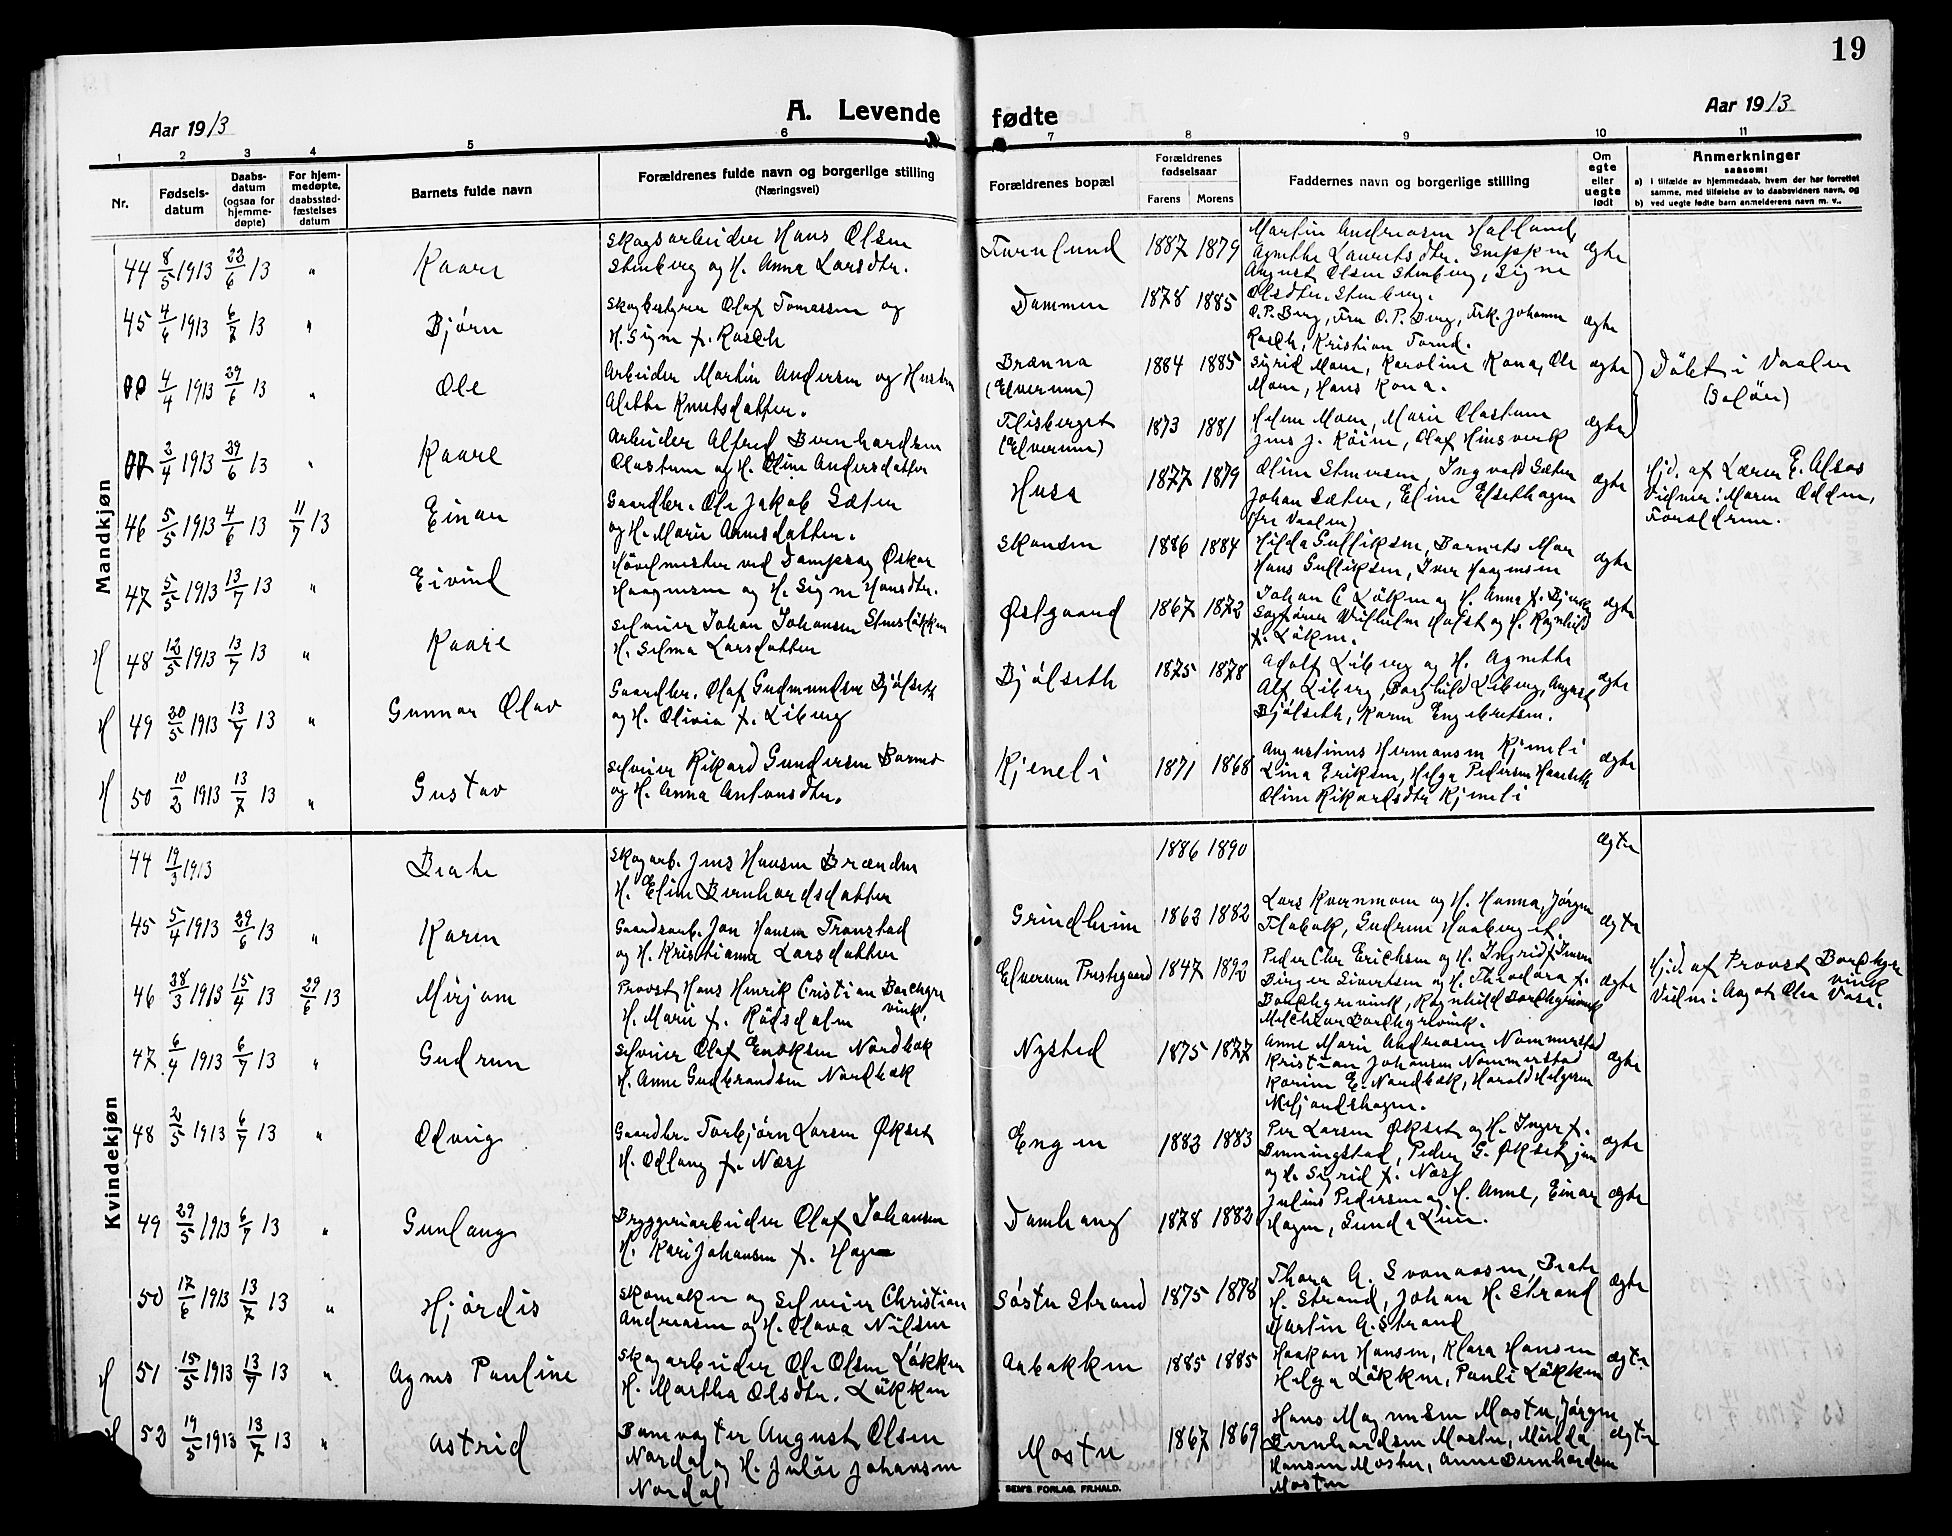 19
Aar 1913
A. Levende
fødte
Aar 1913
1 2 3 4 5 6 7 8 9 10 11
Nr.
Fødsels-
datum
Daabs-
datum
(ogsaa for
hjemme-
døpte)
For hjem-
medøpte,
daabsstad-
fæstelses
datum
Barnets fulde navn
Forældrenes fulde navn og borgerlige stilling
(Næringsvei)
Forældrenes bopæl
Forældrenes
fødselsaar
Farens Morens
Faddernes navn og borgerlige stilling
Om
egte
eller
uegte
født
Anmerkninger
saasom:
a) i tilfælde av hjemmedaab, hvem der har forrettet
samme, med tilføielse av to daabsvidners navn, og
b) ved uegte fødte barn anmelderens navn m. v..
Mandkjøn
44 8/5 1913 22/6 13 " Kaare
Skogsarbeider Hans Olsen
Stenberg og H. Anna Larsdtr.
Furulund 1887 1879
Martin Andreasen
Agnethe Lauritsdtr.
August Olsen Stenberg, Signe
Olsdtr. Stenberg.
ægte
45 4/6 1913 6/7 13 " Bjørn
Skogbestyrer Olaf Tomassen og
H. Signe f. Rasch
Dammen 1878 1885
O. P. Berg, Fru O. P. Berg, Frk. Johanne
Rasch, Kristian
ægte
4/4 1913 29/6 13 " Ole
Arbeider Martin Andersen og Hustru
Alette Knutsdatter.
Brænna
(Elverum)
1884 1885
Sigrid Moen, Karoline Kona, Ole
Moen, Hans Kona.
ægte
Døbt i Vaaler
(Solør)
3/4 1913 29/6 13 " Kaare
Arbeider Alfred Bernhardsen
Olastuen og H. Oline Andersdatter
Flisberget
(Elverum)
1873 1881
Helene Moen, Marie Olastuen
Jens J. , Olaf
ægte
46 5/5 1913 4/6 13 11/7 13 Einar
Gaardbr. Ole Jakob Sæter
og H. Marie
Husa 1877 1879
Oline Stenersen, Ingvald Sæter
Johan Sæter, Eline Elsethagen
(fra Vaaler)
ægte
Hjd. af Lærer E. Alsos
Vidner: Maren Odden,
Forældrene.
47 5/5 1913 13/7 13 " Eivind
Høvelmester ved Dampsag Oskar
Haagensen og H. Signe Hansdtr.
Skansen 1886 1884
Hilda Gulliksen, Barnets Mor
Hans Gulliksen, Iver Haagensen
ægte
H 48 12/5 1913 13/7 13 " Kaare
Selveier Johan Johansen Stensløkken
H. Selma Larsdatter
Østgaard 1867 1872
Johan C Løken og H. Anna f.
Sagfører Vilhelm Holst og H. Ragnhild
f. Løken.
ægte
H 49 20/5 1913 13/7 13 " Gunnar Olav
Gaardbr. Olaf Gudmundsen Bjølseth
og H. Olivia f. Liberg
Bjølseth 1875 1878
Adolf Liberg og H. Agnethe
Alf Liberg, Borghild Liberg, August
Bjølseth, Karen Engebretsen.
ægte
H 50 10/2 1913 13/7 13 " Gustav
Selveier Rikard Gundersen
og H. Anna Antonsdtr.
Kjeneli 1871 1868
Augustinus Hermansen Kjeneli
Lina Eriksen, Helga Pedersen
Oline Rikardsdtr Kjeneli
ægte
Kvindekjøn
44 19/3 1913 Beate
Skogarb. Jens Hansen Brænden
H. Eline Bernhardsdatter
1886 1890
ægte
45 5/4 1913 29/6 13 " Karen
Gaardsarb. Jon Hansen Tronstad
og H. Kristianne Larsdatter
Grindheim 1862 1882
Lars Kvernmoen og H. Hanna, Jørgen
Flabæk, Gudrun Haaberget.
ægte
46 28/3 1913 15/4 13 29/6 13 Mirjam
Provst Hans Henrik Cristian Borchgre
vink,
H. Marie f. Rødsdalm
Elverum Prestegaard 1847 1892
Peder Chr Erichsen og H. Ingrid f
Birger Sivertsen og H. Theodora f.
Borchgrevink, Ragnhild Borchgrevink
Melchior Borchgrevink.
ægte
Hjd. af Provst Borchgre
vink
Vidn: Aagot, Olea
47 6/4 1913 6/7 13 " Gudrun
Selveier Olaf Enoksen Nordbæk
H. Anne Gudbrandsen Nordbæk
Nysted 1875 1877
Anne Marie Andreasen Nommerstad
Kristian Johansen Nommerstad
Karine E. Nordbæk, Harald Helgesen
Meljordshagen.
ægte
48 2/5 1913 6/7 13 " Odveig
Gaardbr. Torbjørn Larsen Økset
H. Odlaug f. Næss
Engen 1883 1883
Per Larsen Økset og H. Inger f.
Benningstad, Peder G. Økset jun
og H. Sigrid f. Næss
ægte
49 29/5 1913 6/7 13 " Gunlaug
Bryggeriarbeider Olaf Johansen
H. Kari Johansen f. Hagen
Damhaug 1878 1882
Julius Pedersen og H. Anne, Einar
Hagen, Gunda Lien.
ægte
50 17/6 1913 13/7 13 " Hjørdis
Skomaker og Selveier Christian
Andreasen og H. Olava Nilsen
Søstu Strand 1875 1878
Thora A. Svenaasen, Beate
H. Strand, Johan H. Strand
Martin A. Strand
ægte
H 51 15/5 1913 13/7 13 " Agnes Pauline
Skogarbeider Ole Olsen Løkken
H. Martha Olsdtr. Løkken
Aabakken 1885 1885
Haakon Hansen, Klara Hansen
Helga Løkken, Pauli Løkken
ægte
H 52 19/5 1913 13/7 13 " Astrid
Banevogter August Olsen
Nordal og H. Julie Johansen
Nordal
Mostu 1867 1869
Hans Magnusen Mostu, Jørgen
Bernhardsen Mostu, Milda
Hansen Mostu, Anne Bernhardsen
Mostu
ægte
SEM'S FORLAG, FR.HALD.